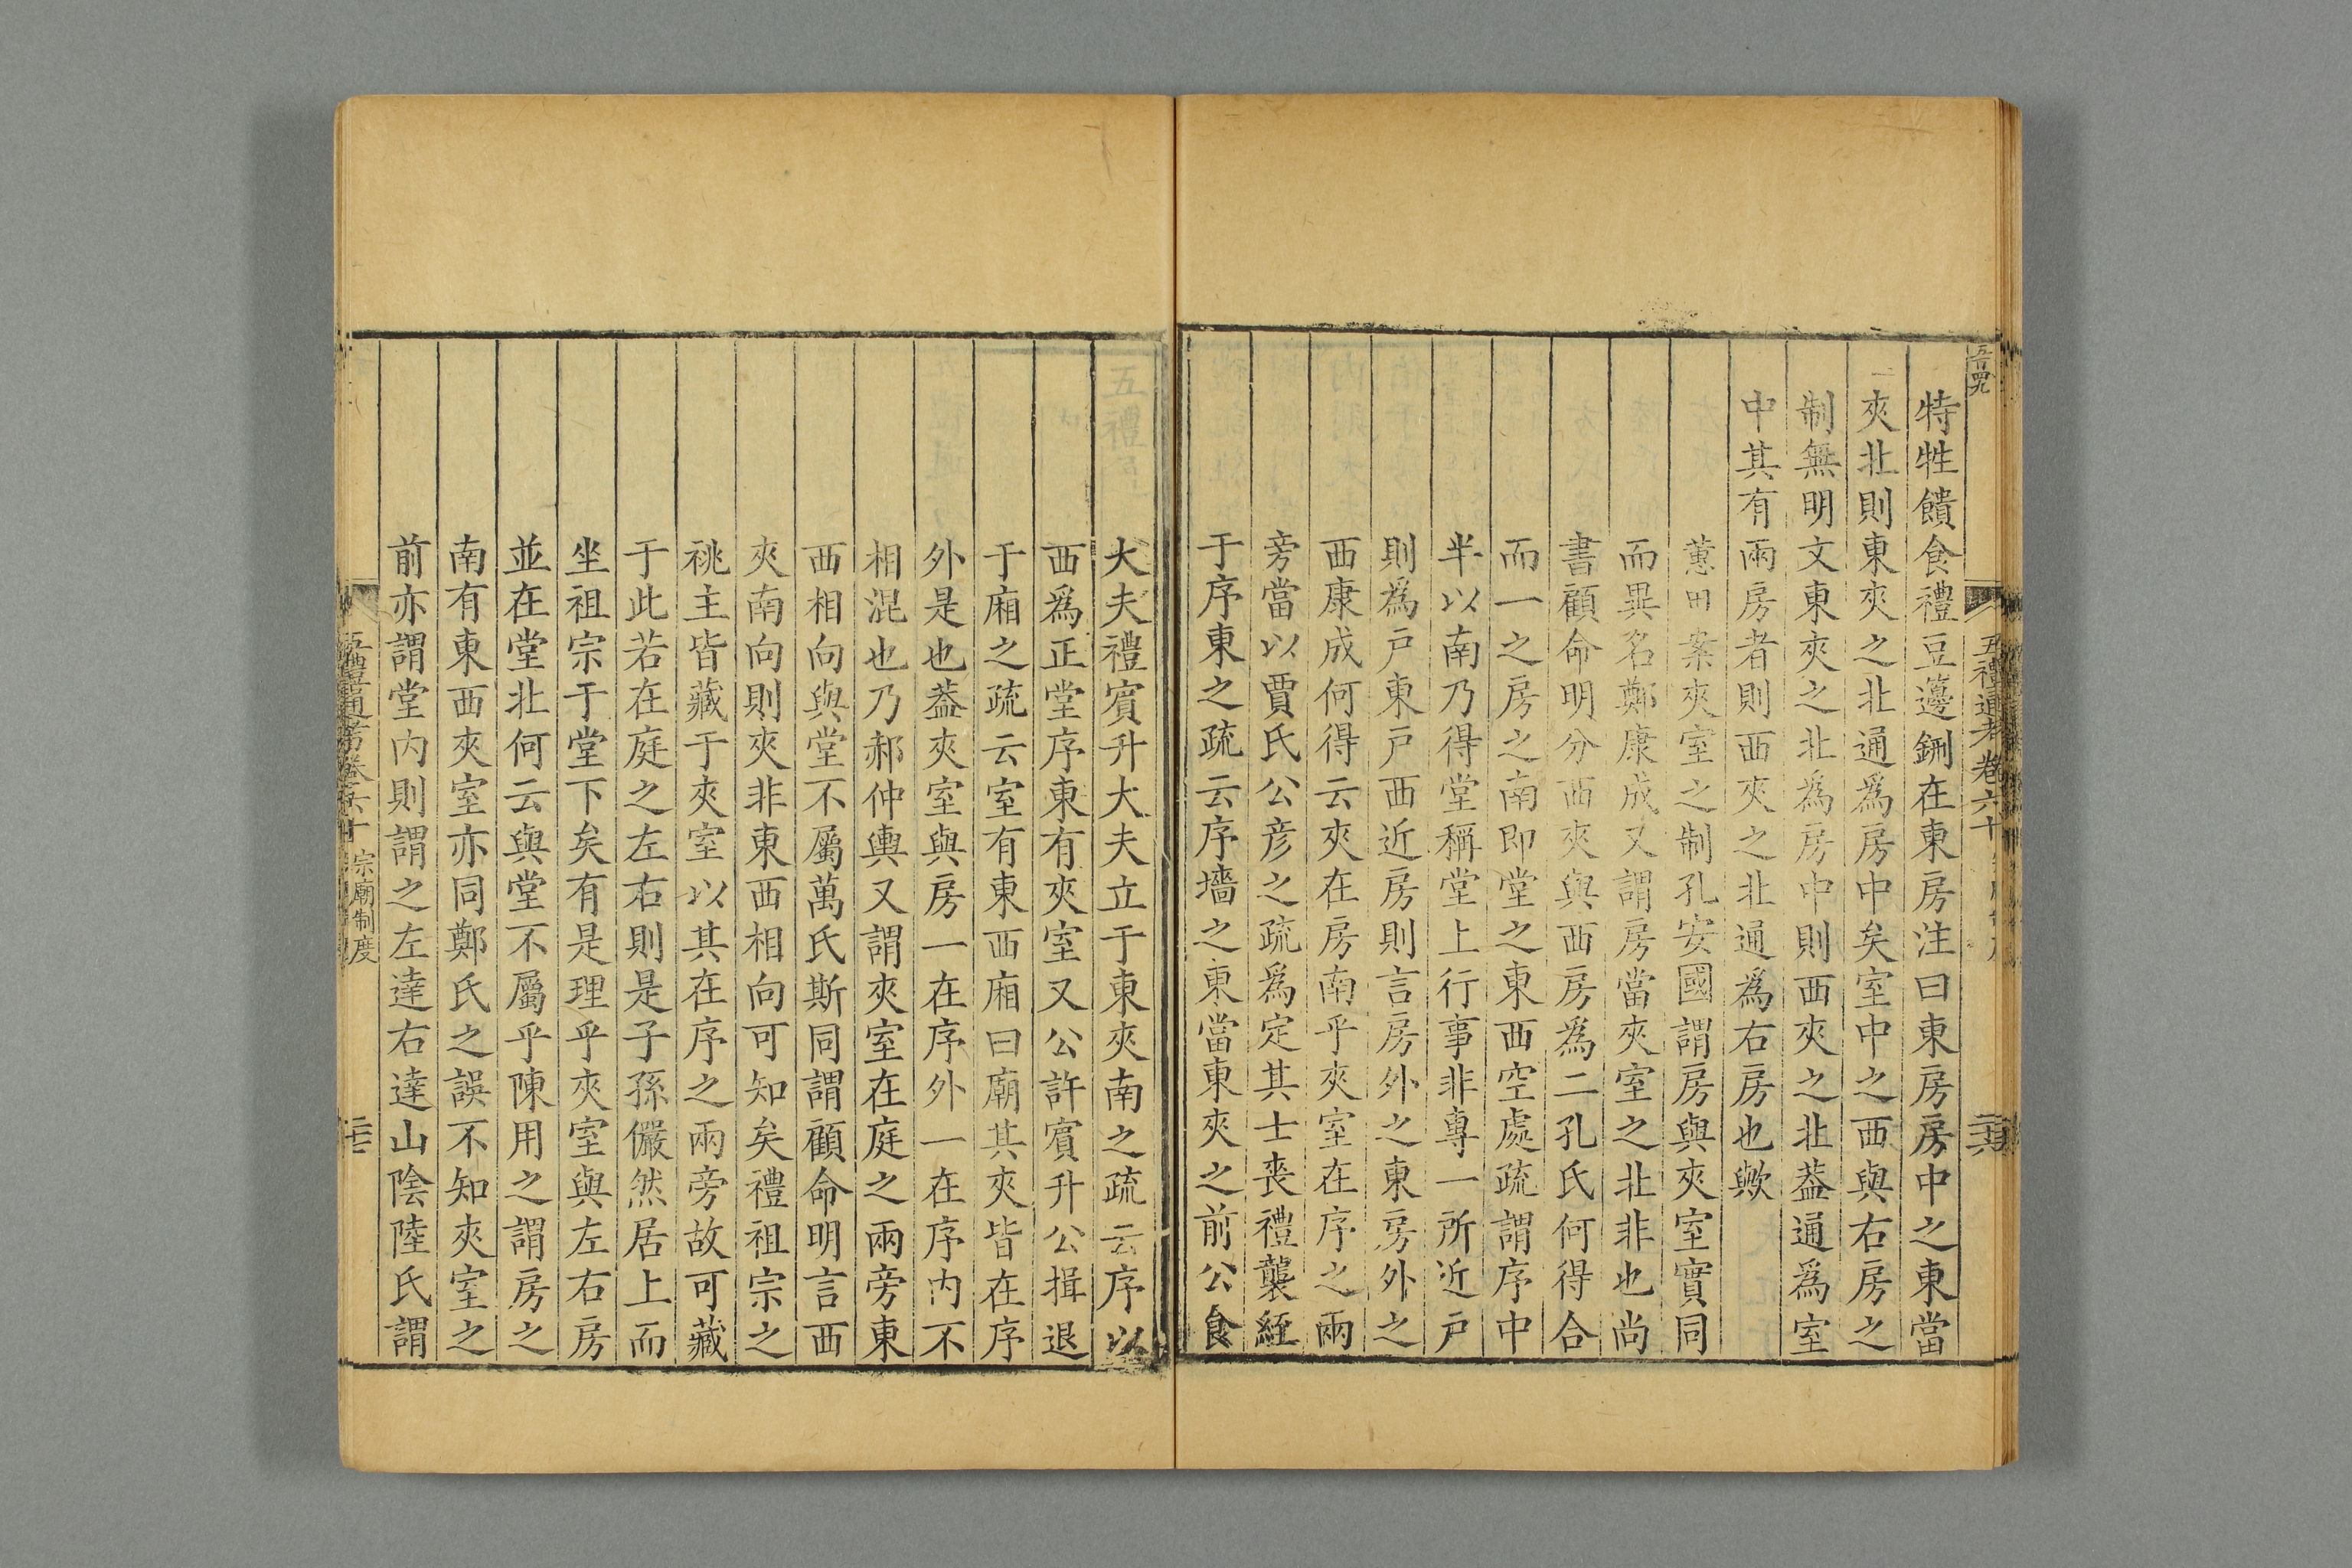 五百四九
五禮通考卷六十
二十六
特牲饋食禮豆籩鉶在東房注曰東房房中之東當
夾北則東夾之北通爲房中矣室中之西與右房之
制無明文東夾之北爲房中則西夾之北葢通爲室
中其有兩房者則西夾之北通爲右房也歟
蕙田案夾室之制孔安國謂房與夾室實同
而異名鄭康成又謂房當夾室之北非也尚
書顧命明分西夾與西房爲二孔氏何得合
而一之房之南即堂之東西空處疏謂序中
半以南乃得堂稱堂上行事非專一所近戸
則爲戸東戸西近房則言房外之東房外之
西康成何得云夾在房南乎夾室在序之兩
旁當以賈氏公彦之疏爲定其士喪禮襲絰
于序東之疏云序墻之東當東夾之前公食
大夫禮賓升大夫立于東夾南之疏云序以
西爲正堂序東有夾室又公許賓升公揖退
于廂之疏云室有東西廂曰廟其夾皆在序
外是也葢夾室與房一在序外一在序内不
相混也乃郝仲輿又謂夾室在庭之兩旁東
西相向與堂不屬萬氏斯同謂顧命明言西
夾南向則夾非東西相向可知矣禮祖宗之
祧主皆藏于夾室以其在序之兩旁故可藏
于此若在庭之左右則是子孫儼然居上而
坐祖宗于堂下矣有是理乎夾室與左右房
並在堂北何云與堂不屬乎陳用之謂房之
南有東西夾室亦同鄭氏之誤不知夾室之
前亦謂堂内則謂之左達右達山陰陸氏謂
五禮通考卷六十 宗廟制度
二十七